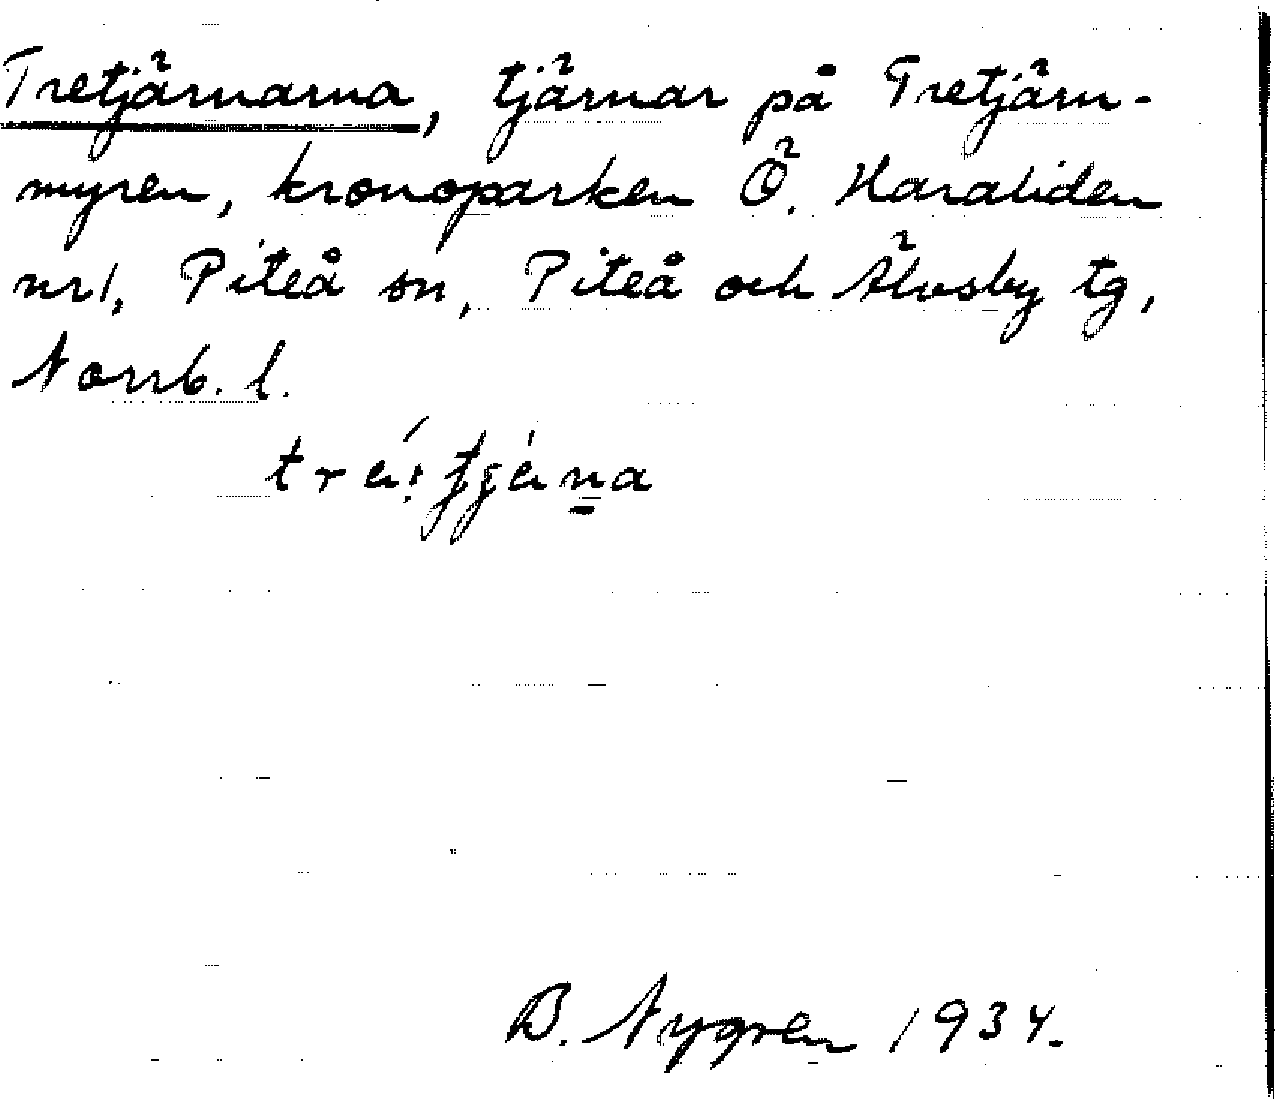 Tretjärnarna, tjärnar på Tretjärn-
myren, kronoparken Ö. Haraliden
nr 1, Piteå sn, Piteå och Älvsby tg,
Norrb. l.
B. Nygren 1934.